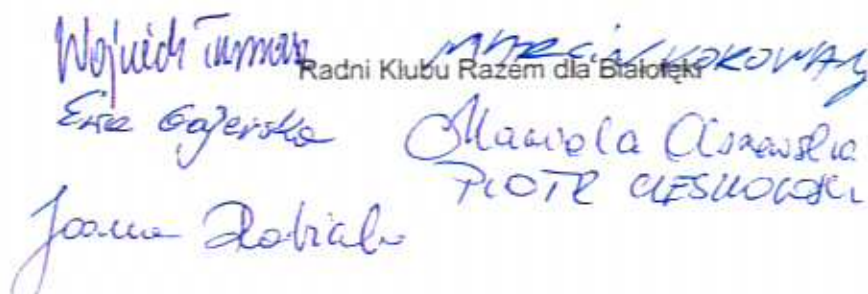 Wojciech Tumasz
Radni Klubu Razem dla Białołęki
MARCIN KOROWAJ
Ewa Gajewska
Mariola Olszewska
PIOTR CIESZKOWSKI
Joanna